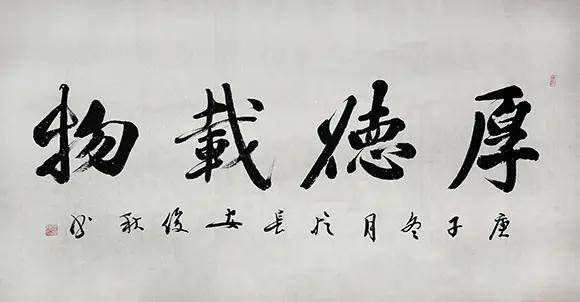 厚德載物
庚子冬月於長安俊秋書